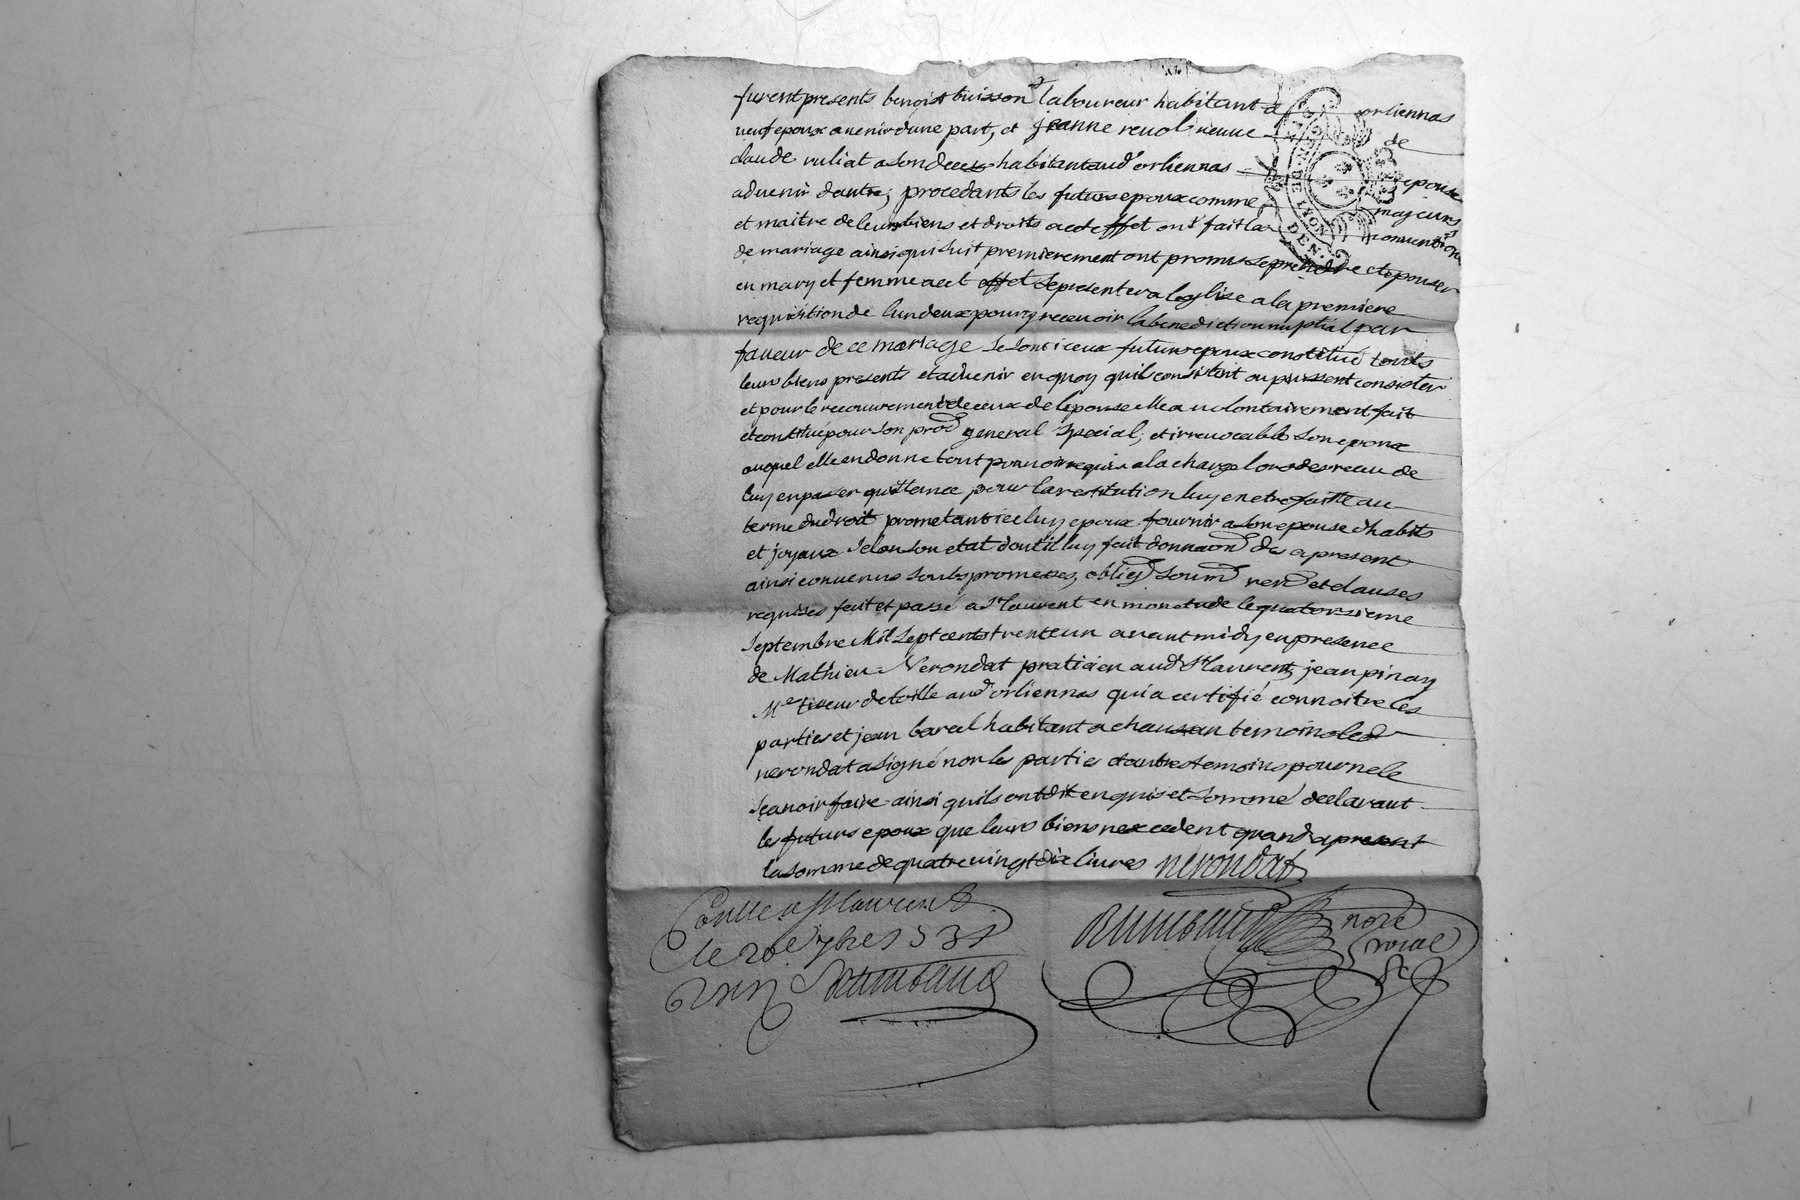 furent presents benoist buisson laboureur habitant a orliennas
veuf epoux avenir dune part, et jeanne revol veuve de
claude ruliat a son deces habitante aud orliennas epouse
advenir dautre; procedants les futurs epoux comme majeurs
et maitre de leurs biens et droits a cet effet ont fait les conventions
de mariage ainsi qui suit premierement ont promis se prendre et epouser
en mary et femme a cet effet se presenter a leglise a la premiere
requisition de lun deux pour y recevoir la benediction nuptial par
faveur de ce mariage se sont iceux futurs epoux constitué touts
leurs biens presents et advenir en quoy quils consistent ou puissent consister
et pour le recouvrement de ceux de lepouse elle a volontairement fait
et constitué pour son proc general special, et irrevocable son epoux
auquel elle en donne tout pouvoir requis a la charge lors des receu de
luy en passer quittance pour la restitution luy en etre faitte au
terme du droit prometant iceluy epoux fournir a son epouse dhabits
et joyaux selon son etat dont il luy fait donnaon des a present
ainsi convenus soubs promesses, oblig soum ren et clauses
requises fait et passé a St laurent en mon etude le quatorsieme
septembre Mil sept cents trente un avant midy en presence
de Mathieu Nerondat praticien aud St laurent, jean pinay
Me tixeur de toille aud orliennas qui a certifié connoitre les
parties et jean bareel habitant a chaussan temoins led
nerondat a signé non les parties et autres temoins pour ne le
sçavoir faire ainsi quils ont dit enquis et sommé declarant
les futurs epoux que leurs biens nexcedent quand a present
la somme de quatre vingt dix livres nerondat
Conlle a St laurent
le 20e 7bre 1731
Raimbaud
Raimbaud nore
roial
GENER DE LYON